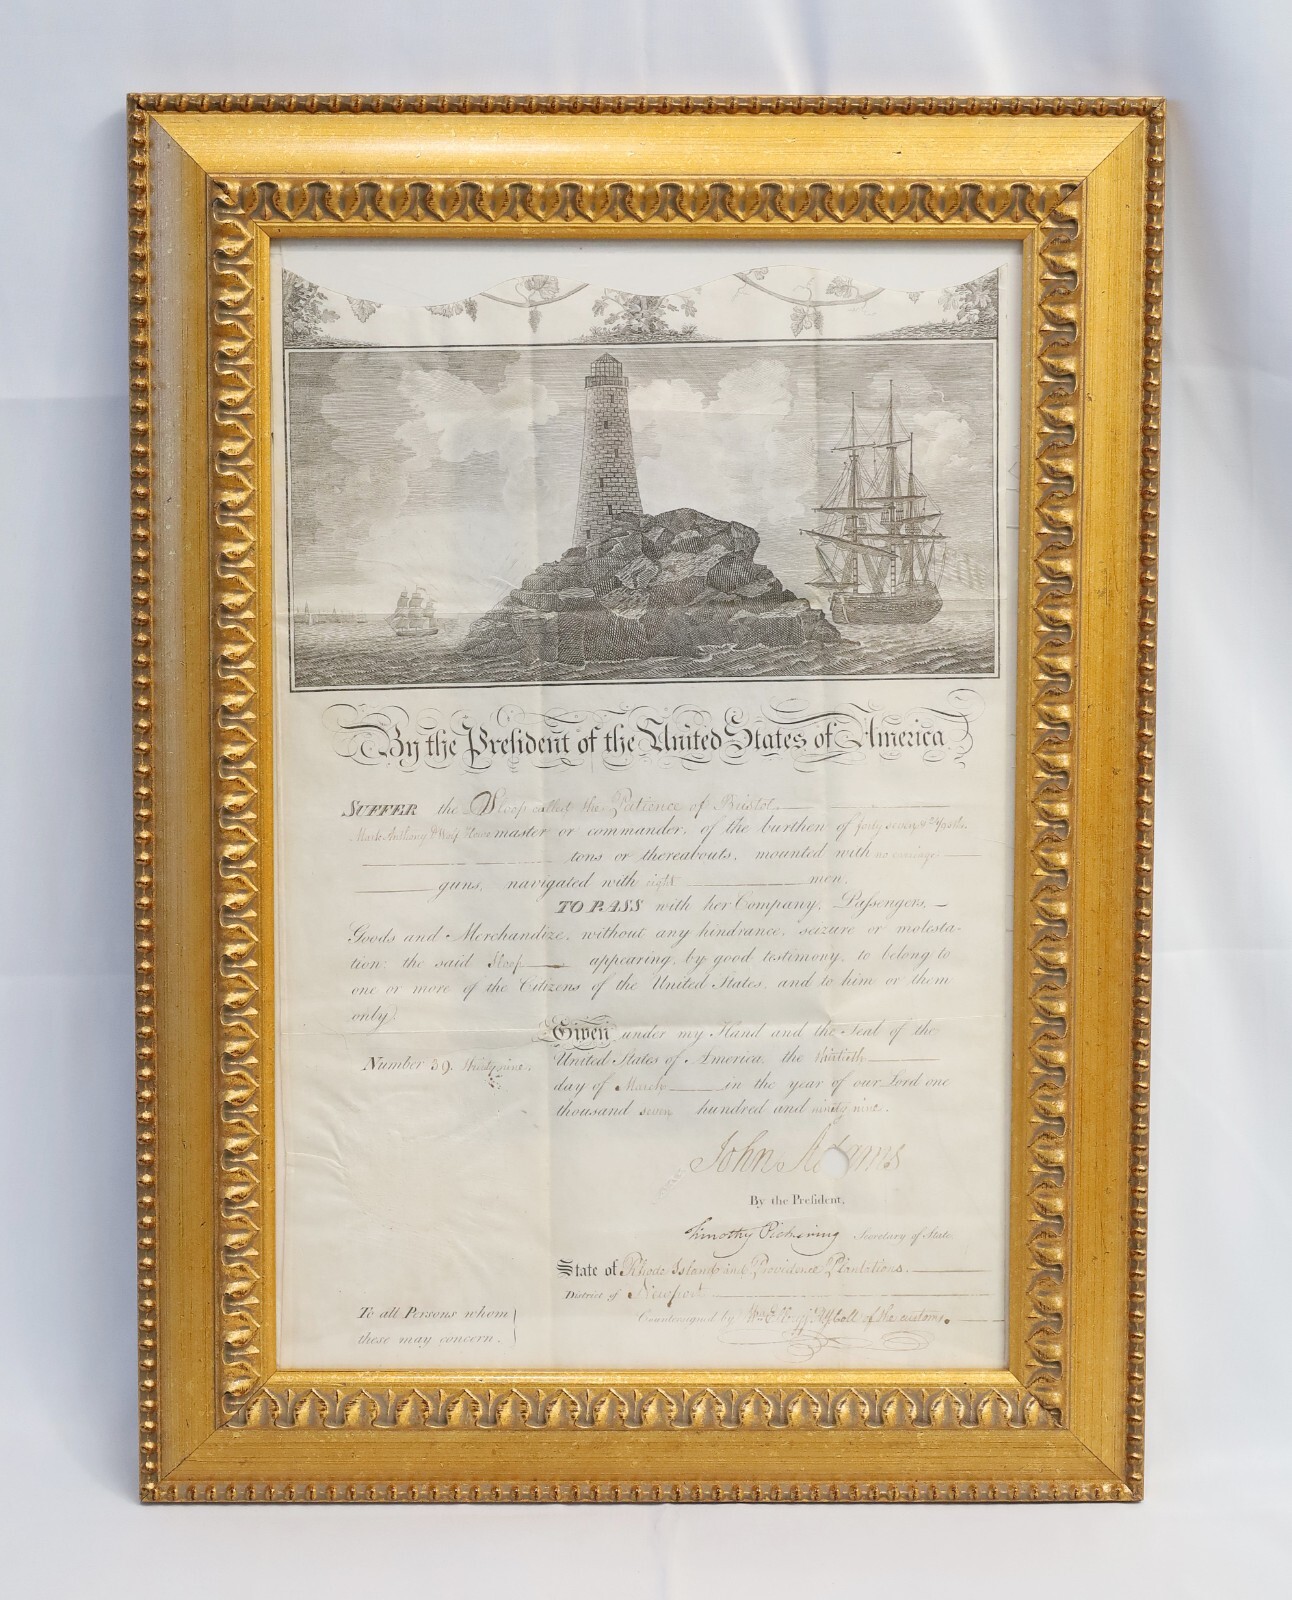 By the President of the United States of America
SUFFER the Sloop called the Patience of Bristol
Mark Anthony D'Wolf master or commander, of the burthen of forty seven
tons or thereabouts, mounted with no carriage
guns, navigated with eight men.
TO PASS with her Company, Passengers,
Goods and Merchandize, without any hindrance, seizure or molesta-
tion: the said Sloop appearing, by good testimony, to belong to
one or more of the Citizens of the United States, and to him or them
only.
Given under my Hand and the Seal of the
Number 39. thirty nine. United States of America, the thirtieth
day of March in the year of our Lord one
thousand seven hundred and ninety nine.
John Adams
By the President,
Timothy Pickering Secretary of State
State of Rhode Island and Providence Plantations.
District of Newport
To all Persons whom Countersigned by Wm Ellery Coll of the customs.
these may concern.